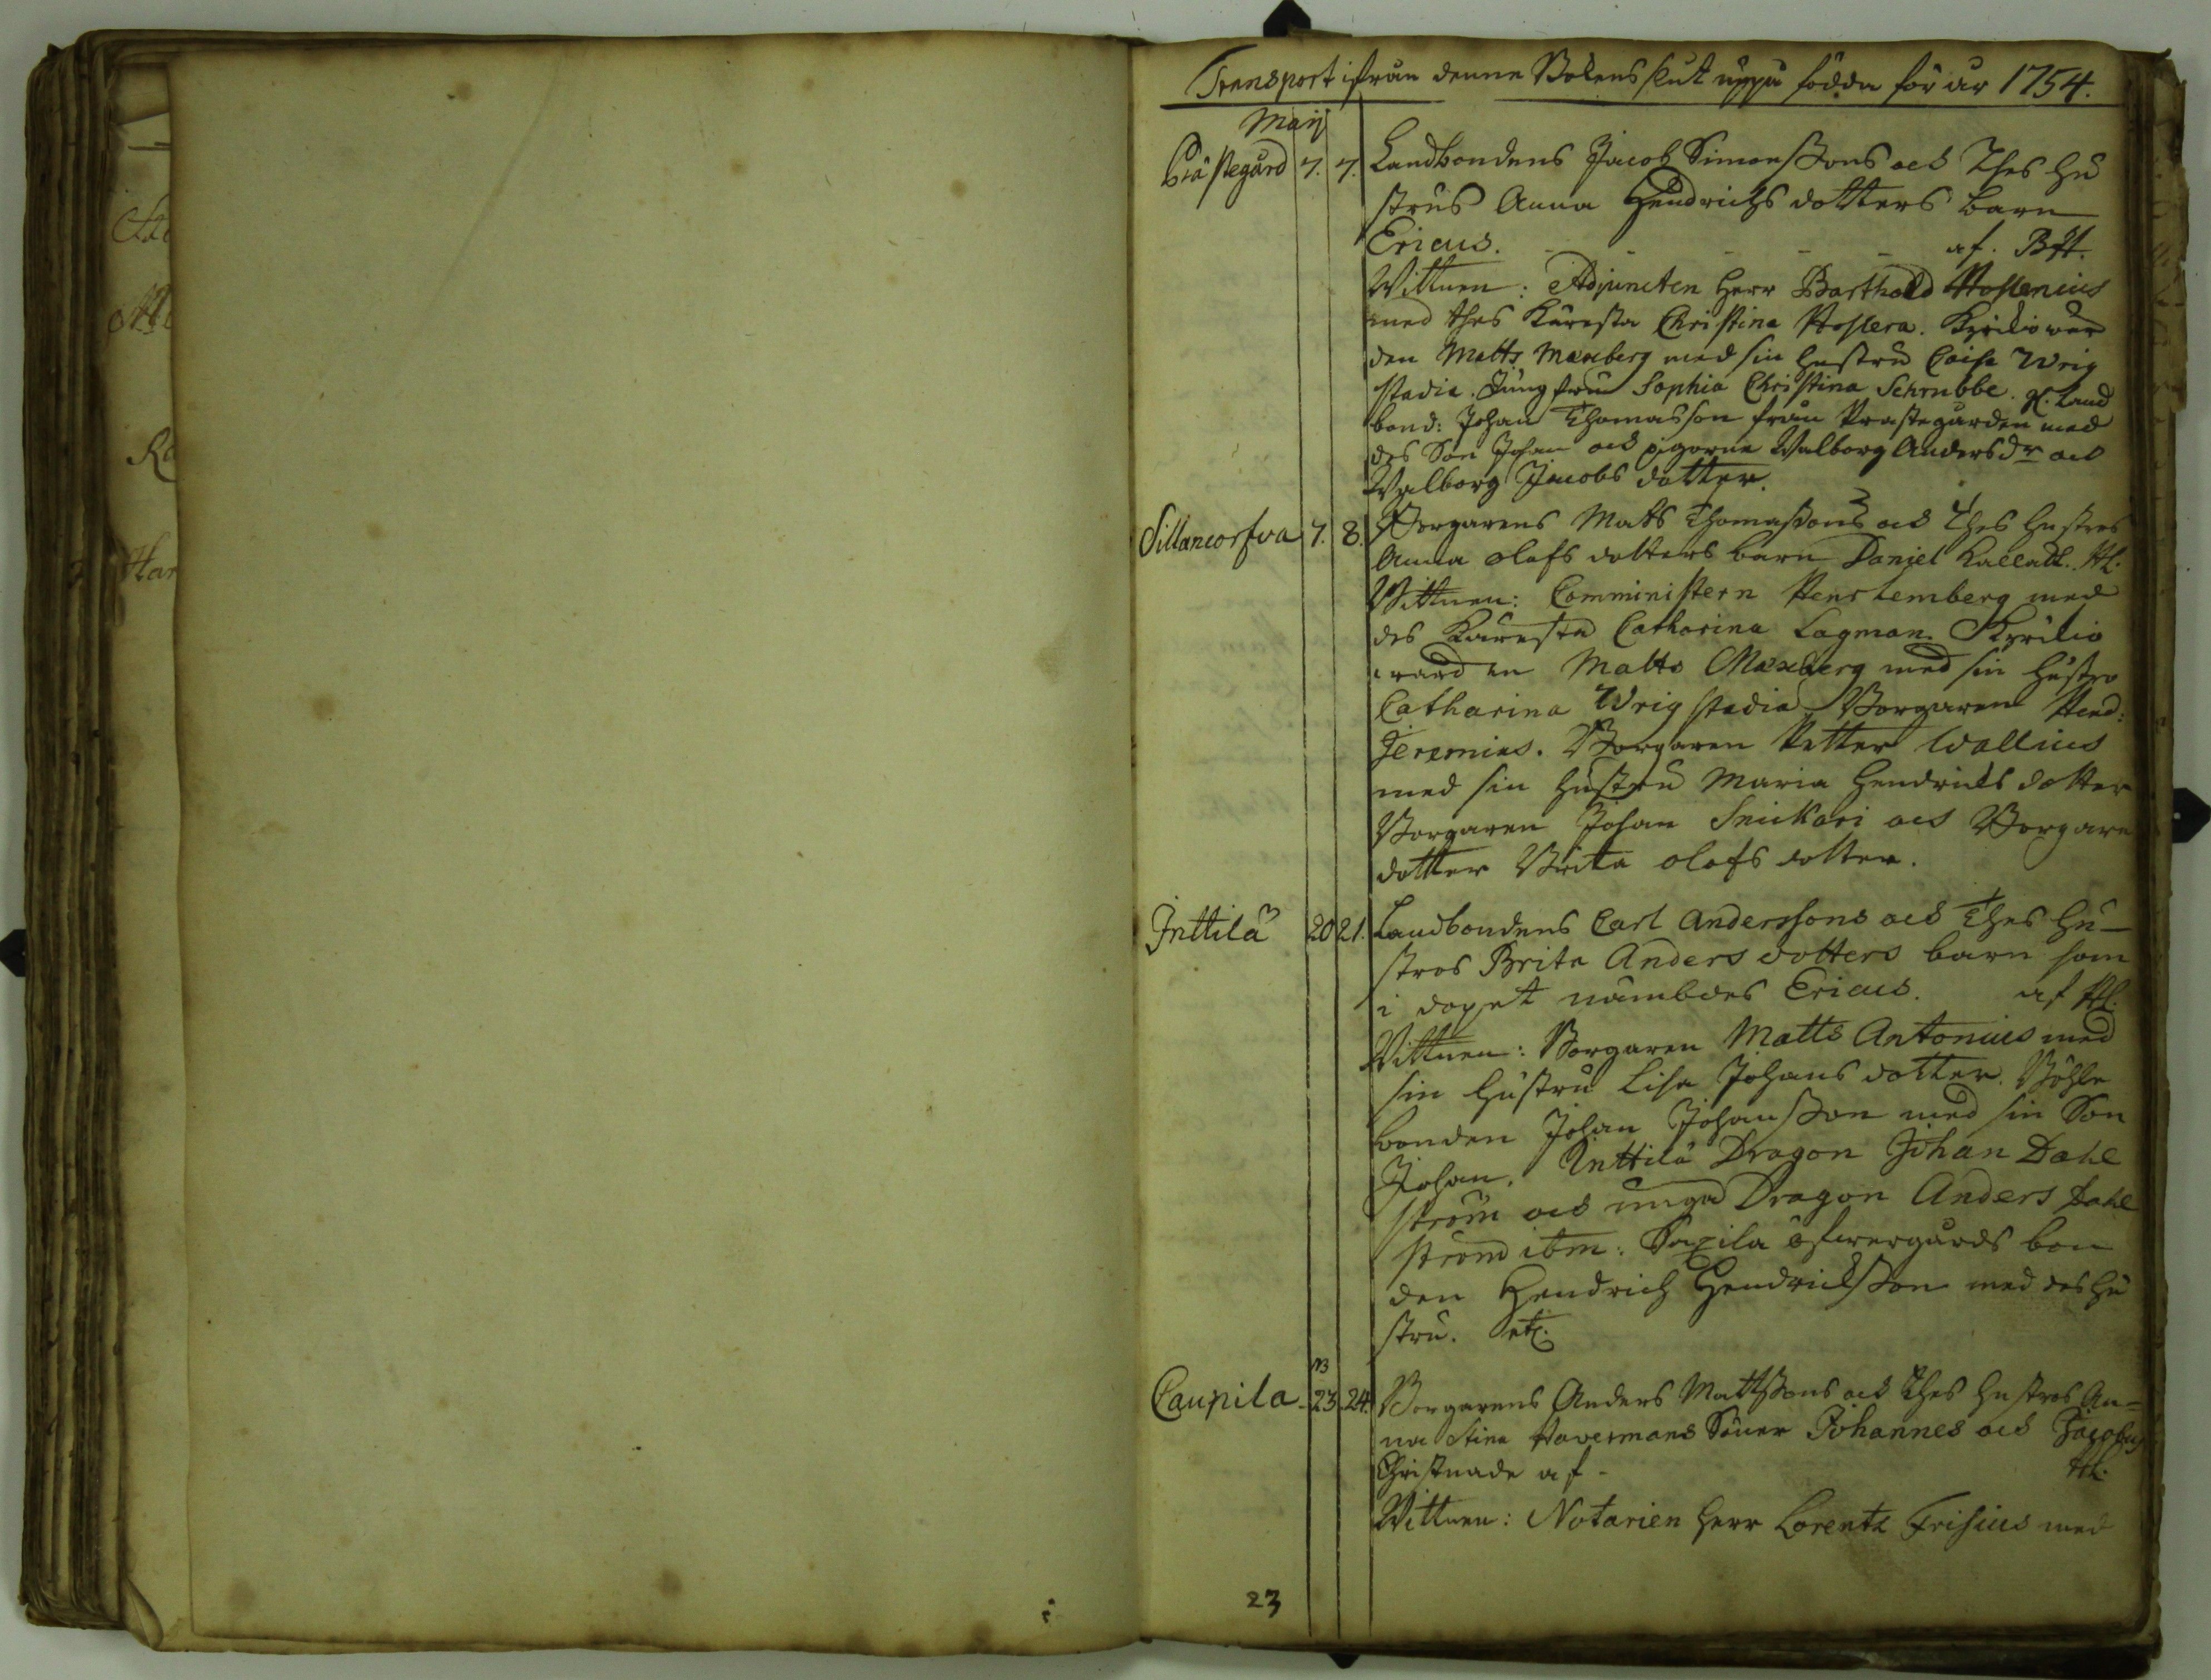 Transport ifrån denna Bokens slut uppå födda för år 1754.
Maij
Prästegård 7. 7. Landbondens Jacob Simonssons och Thes hu
strus Anna Hendrichs dotters barn
Ericus. - - - - - af. BH.
Wittnen: Adjuncten Herr Barthold
med thes Käresta Christina. Kyrkiowär
den Matts Maxberg med sin hustru Caisa Wrig
stadia. Jungfrun Sophia Christina Schrubbe. Land
bond: Johan Thomasson från Prästegården med
des Son Johan och pigorna Walborg Andersdr och
Walborg Jacobs dotter.
Sillancorfva 7. 8. Borgarens Mats Thomassons och Thes hustrus
Anna Olofs dotters barn Daniel kalladt. HL.
Wittnen: Comministern med
des Käresta Catharina Lagman. Kyrkio
wärden Matts Maxberg med sin hustro
Catharina Wrigstadia. Borgaren Hend:
Jeremias. Borgaren Petter Wallius
med sin hustru Maria Hendrichs dotter
Borgaren Johan Snickari och Borgare
dotter Brita Olofs dotter.
Inttilä 20 21. Landbondens Carl Anderssons och Thes hu-
stros Brita Anders dotters barn som
i dopet nämbdes Ericus. af HL.
Wittnen: Borgaren Matts Antonius med
sin hustru Lisa Johans dotter. Böhle
bonden Johan Johansson med sin Son
Johan. Inttilä Dragon Johan Dahl
ström och unga Dragon Anders Dahl
ström ibm: öfwergårds bon
den Hendrich Hendrichsson med des hu
stru. etc.
NB
Caupila - 23. 24. Borgarens Anders Mattssons och Thes hustros An-
na Stina Havermans Söner Johannes och Jacobus
Christnade af - HL.
Wittnen: Notarien Herr Lorentz Frisius med
23